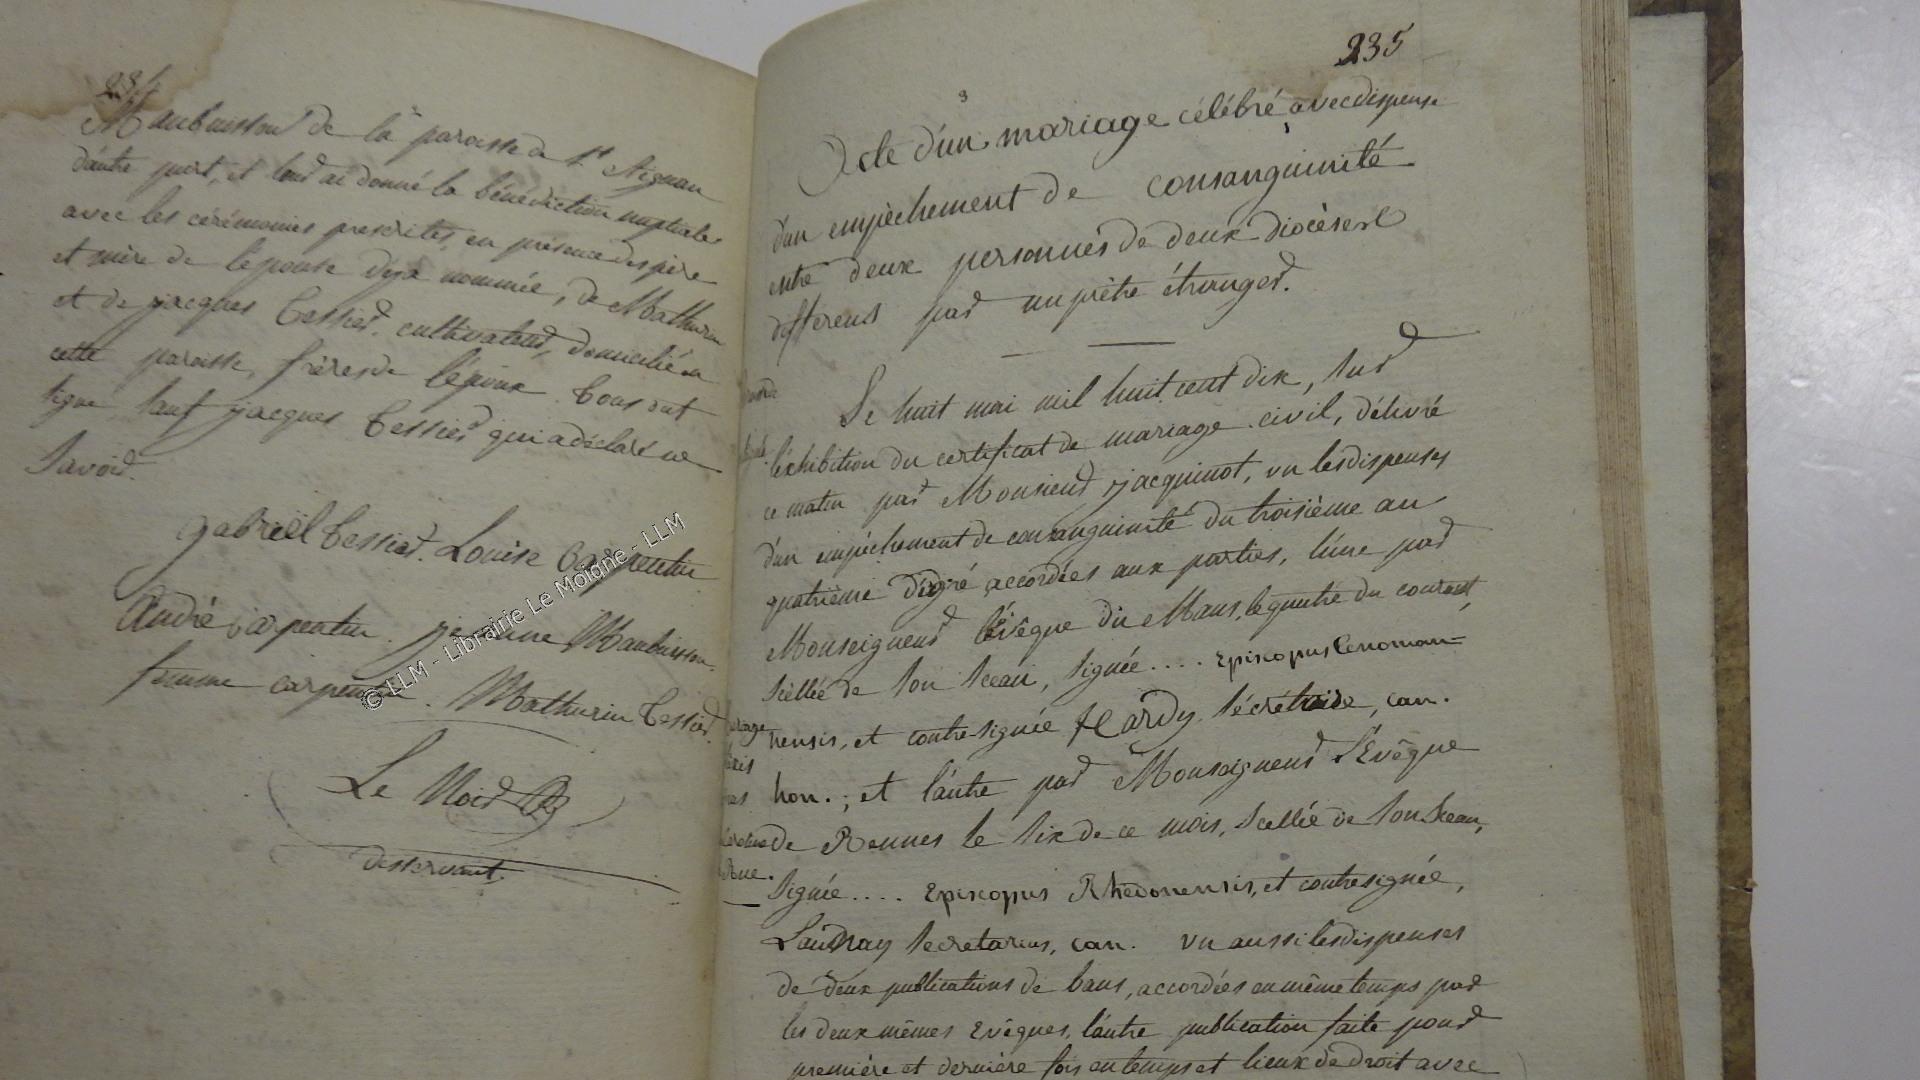 234
Maubuisson de la paroisse de St Aignan
d'autre part, et leur ai donné la bénédiction nuptiale
avec les cérémonies prescrites, en présence des père
et mère de l'épouse déja nommée, de Mathurin
et de jacques Tessier, cultivateurs, domiciliés en
cette paroisse, frères de l'époux. Tous ont
signé, sauf jacques Tessier qui a déclaré ne
savoir.
gabriël Tessier. Louise Carpentier
André Carpentier. jeanne Maubuisson
femme carpentier. Mathurin Tessier.
Le Noir
desservant.
© LLM - Librairie Le Moigne - LLM
235
Acte d'un mariage célébré avec dispense
d'un empèchement de consanguinité
entre deux personnes de deux diocèses
différens par un prêtre étranger.
Le huit mai mil huit cent dix, sur
l'éxhibition du certificat de mariage civil, délivré
ce matin par Monsieur jacquinot, vu les dispenses
d'un empèchement de consanguinité du troisième au
quatrième dégré, accordées aux parties, l'une par
Monseigneur l'évêque du Mans, le quatre du courant,
scèllée de son sceau, signée .... Episcopus Cenoman=
nensis, et contre-signée Hardy sécrétaire, can.
hon. ; et l'autre par Monseigneur l'Evêque
de Rennes le six de ce mois, scellée de son sceau,
signée .... Episcopus Rhedonensis, et contresignée,
Launay secretarius, can. vu aussi les dispenses
de deux publications de bans, accordées en même temps par
les deux mêmes Evêques, l'autre publication faite pour
première et dernière fois en temps et lieux de droit avec